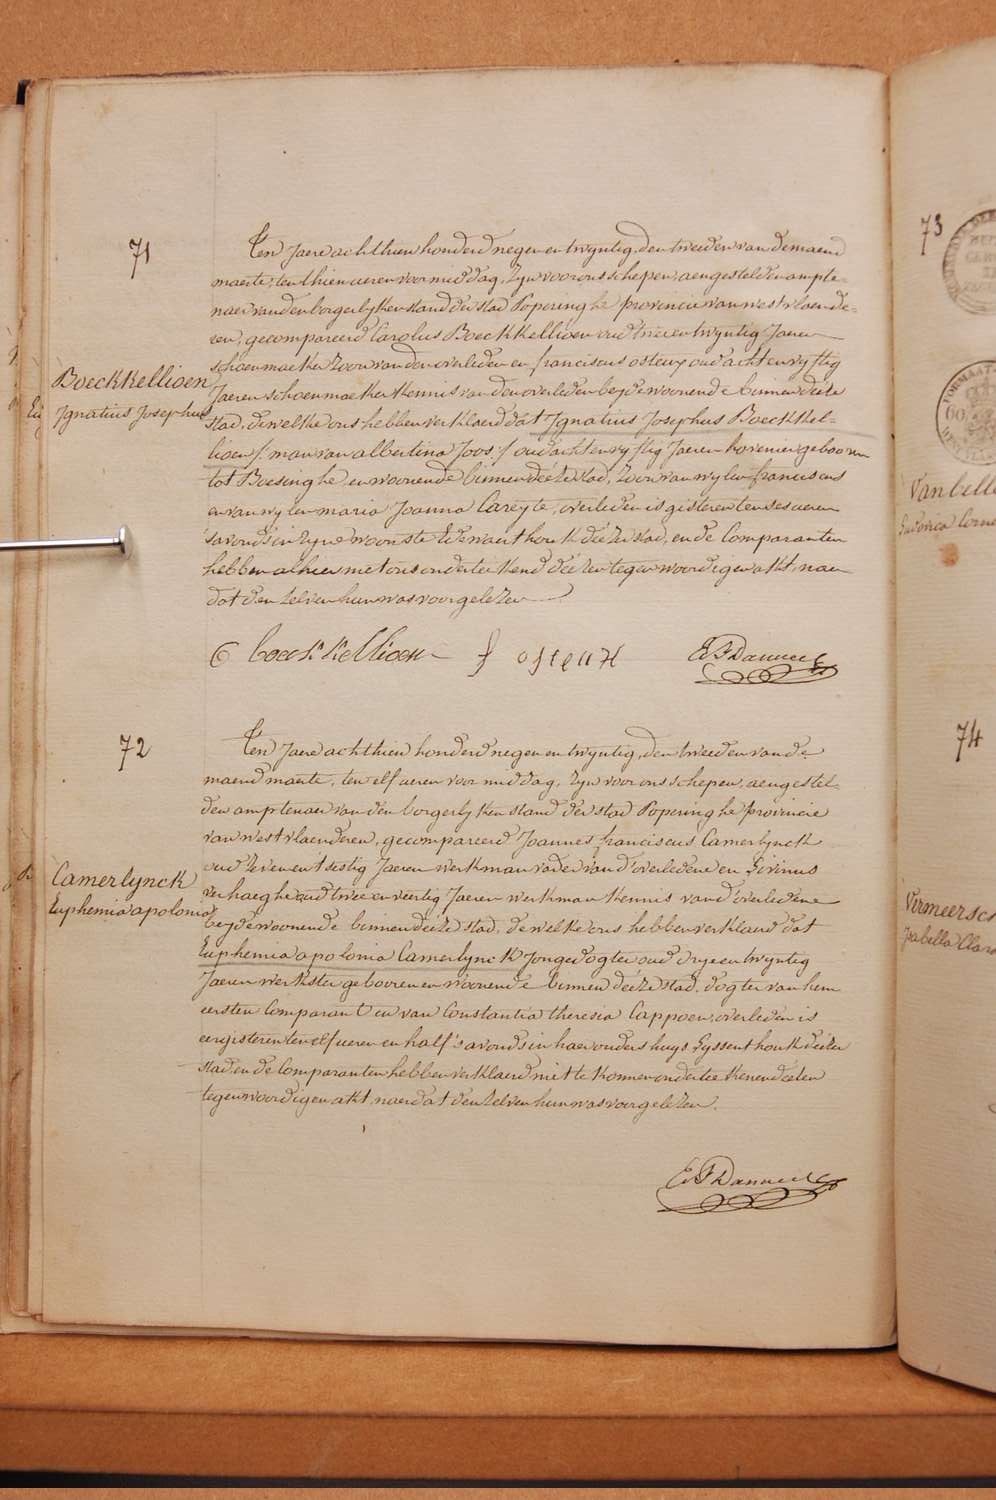 71
Ten Jaere achthien honderd negen en twyntig, den tweeden van de maend
maerte, ten thien ueren voormiddag, zyn voor ons schepen, aengestelden ampte-
naer van den borgerlyken stand der stad Poperinghe provincie van westvlaende-
ren, gecompareerd Carolus Boeckkellioen oud twee en twyntig Jaeren
schoenmaeker zoon van den overleden en franciscus osteux oud acht en vyftig
Jaeren schoenmaeker kennis van den overleden beyde woonende binnen deéze
stad, dewelke ons hebben verklaerd dat Ignatius Josephus Boeckkel-
lioen / man van albertina Joos / oud acht en vyftig Jaeren hovenier gebooren
tot Boesinghe, en woonende binnen deéze stad, zoon van wylen franciscus
en van wylen maria Joanna Careyte, overleden is gisteren ten ses ueren
's avonds in zyne woonste Edewaerthouk deézer stad, en de Comparanten
hebben alhier met ons onderteekend deézen tegenwoordigen akt, naer
dat den zelven hun was voorgelezen
Boeckkellioen
Ignatius Josephus
C boeckkellioen f osteux E F Danneel
72
Ten Jaere achthien honderd negen en twyntig, den tweeden van de
maend maerte, ten elf ueren voormiddag, zyn voor ons schepen, aengestel-
den amptenaer van den borgerlyken stand der stad Poperinghe provincie
van westvlaenderen, gecompareerd Joannes franciscus Camerlynck
oud zeven en t'sestig Jaeren werkman vader van d'overledene en Livinus
verhaeghe oud twee en veertig Jaeren werkman kennis van d'overledene
beyde woonende binnen deéze stad, dewelke ons hebben verklaerd dat
Euphemia apolonia Camerlynck Jonge dogter oud drye en twyntig
Jaeren werkster gebooren en woonende binnen deéze stad, dogter van hem
eersten Comparant en van Constantia theresia Cappoen, overleden is
eergisteren ten elf ueren en half 's avonds in haer ouders huys Eyssenthouk deézer
stad en de Comparanten hebben verklaerd niet te konnen onderteekenen deézen
tegenwoordigen akt, naer dat den zelven hun was voorgelezen.
Camerlynck
Euphemia apolonia
E F Danneel
73
74